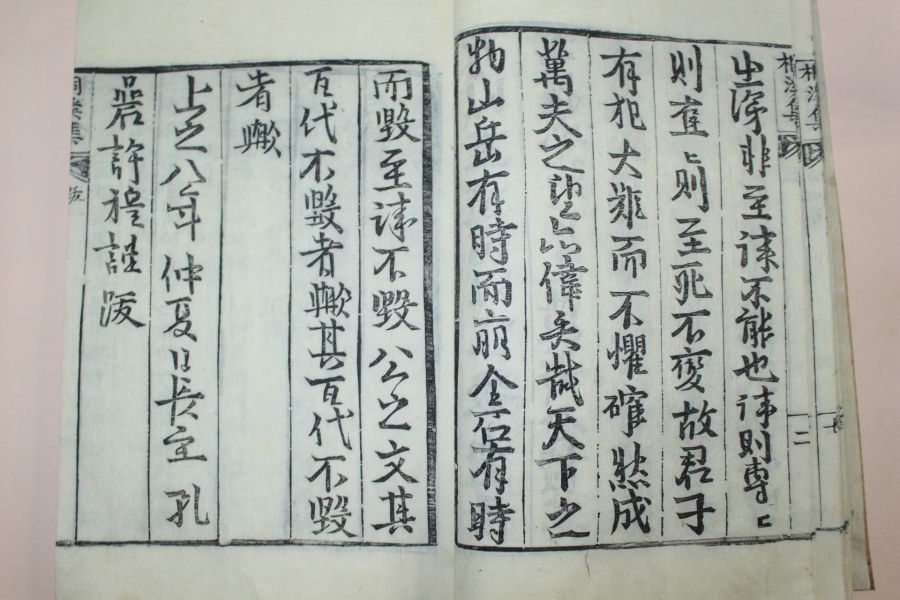 桐溪集
非至誠不能也誠則專〻
則〻則至死不變故君子
有犯大難而不懼確然成
萬夫之望亦偉矣哉天下之
物山岳有時而崩金石有時
二
而毀至誠不毀公之文其
百代不毀者歟其百代不毀
者歟
上之八年仲夏日長至孔
岩許穆謹跋
桐溪集 跋